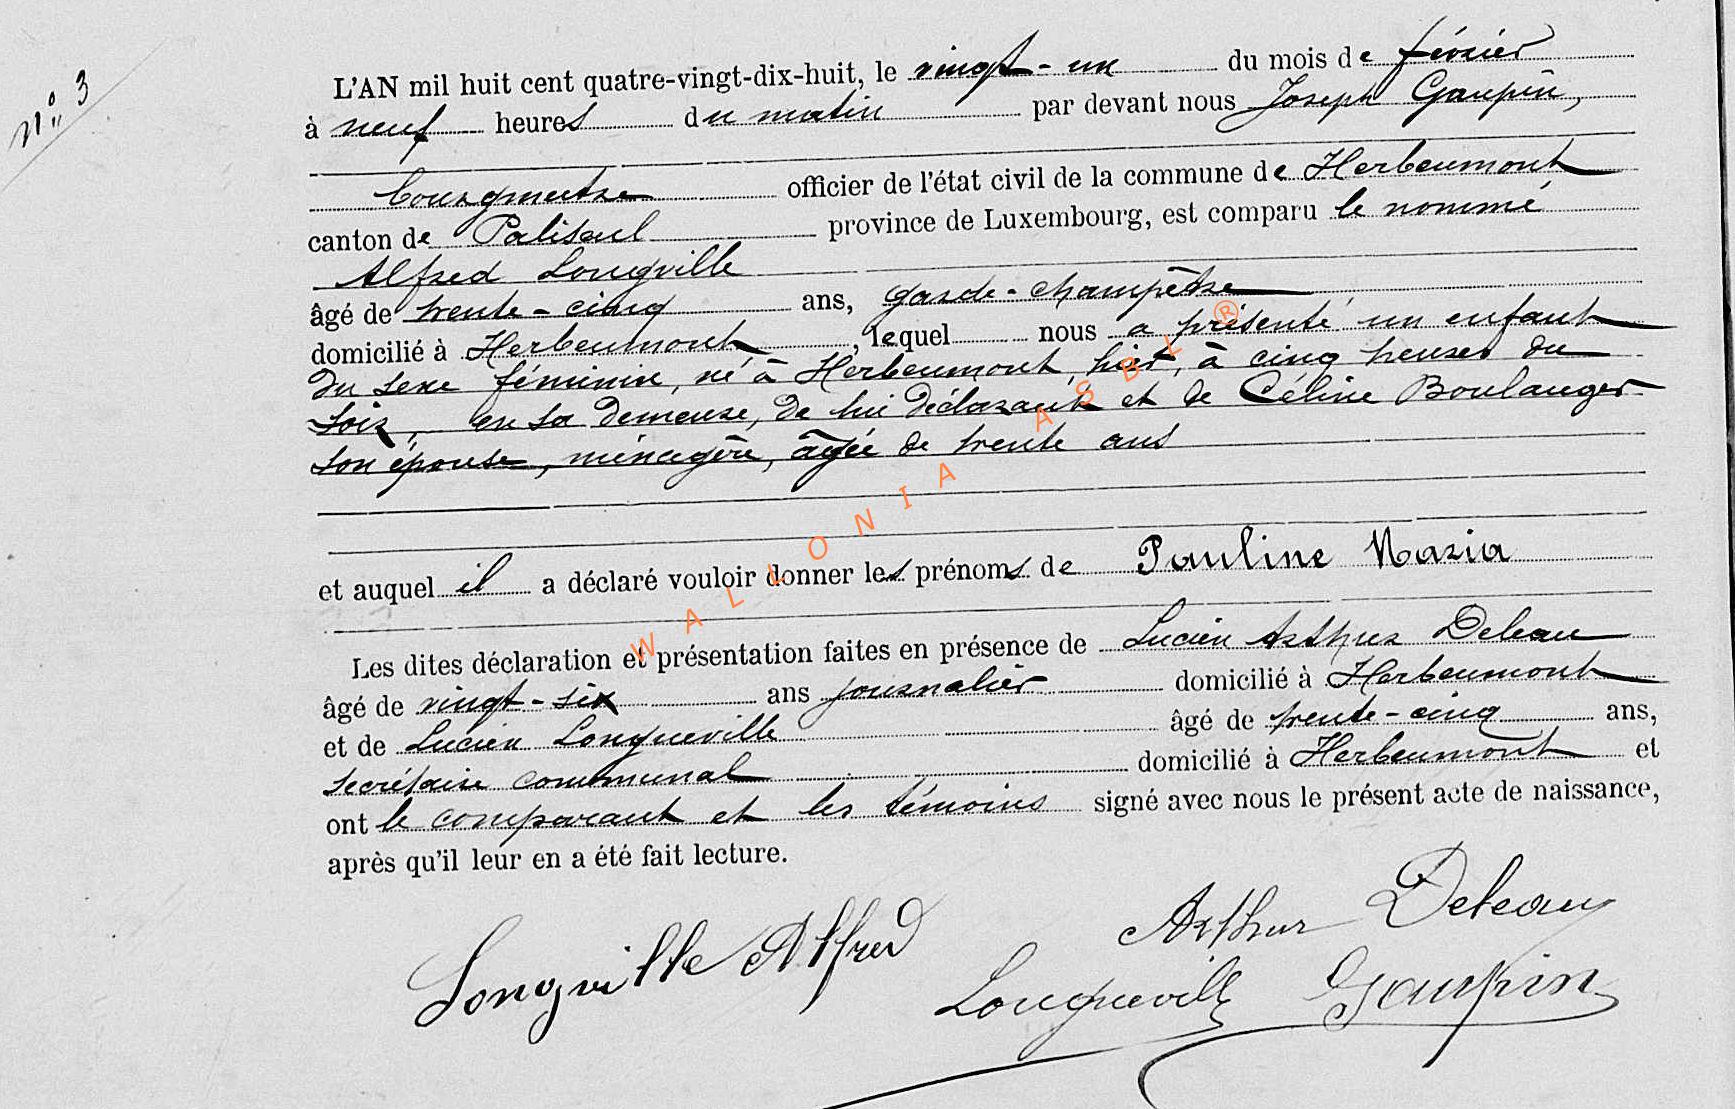 N° 3
L'AN mil huit cent quatre-vingt-dix-huit, le vingt-un du mois de février
à neuf heures du matin par devant nous Joseph Gaupin,
bourgmestre officier de l'état civil de la commune de Herbeumont
canton de Paliseul province de Luxembourg, est comparu le nommé
Alfred Longville
âgé de trente-cinq ans, garde-champêtre
domicilié à Herbeumont, lequel nous a présenté un enfant
du sexe féminin, né à Herbeumont, hier, à cinq heures du
soir, en sa demeure, de lui déclarant et de Céline Boulanger
son épouse, ménagère, âgée de trente ans
et auquel il a déclaré vouloir donner les prénoms de Pauline Maria
Les dites déclaration et présentation faites en présence de Lucien Arthur Deleau
âgé de vingt-six ans journalier domicilié à Herbeumont
et de Lucien Longueville âgé de trente-cinq ans,
secrétaire communal domicilié à Herbeumont et
ont le comparant et les témoins signé avec nous le présent acte de naissance,
après qu'il leur en a été fait lecture.
Longville Alfred Arthur Deleau
Longueville Gaupin
WALLONIA ASBL ®